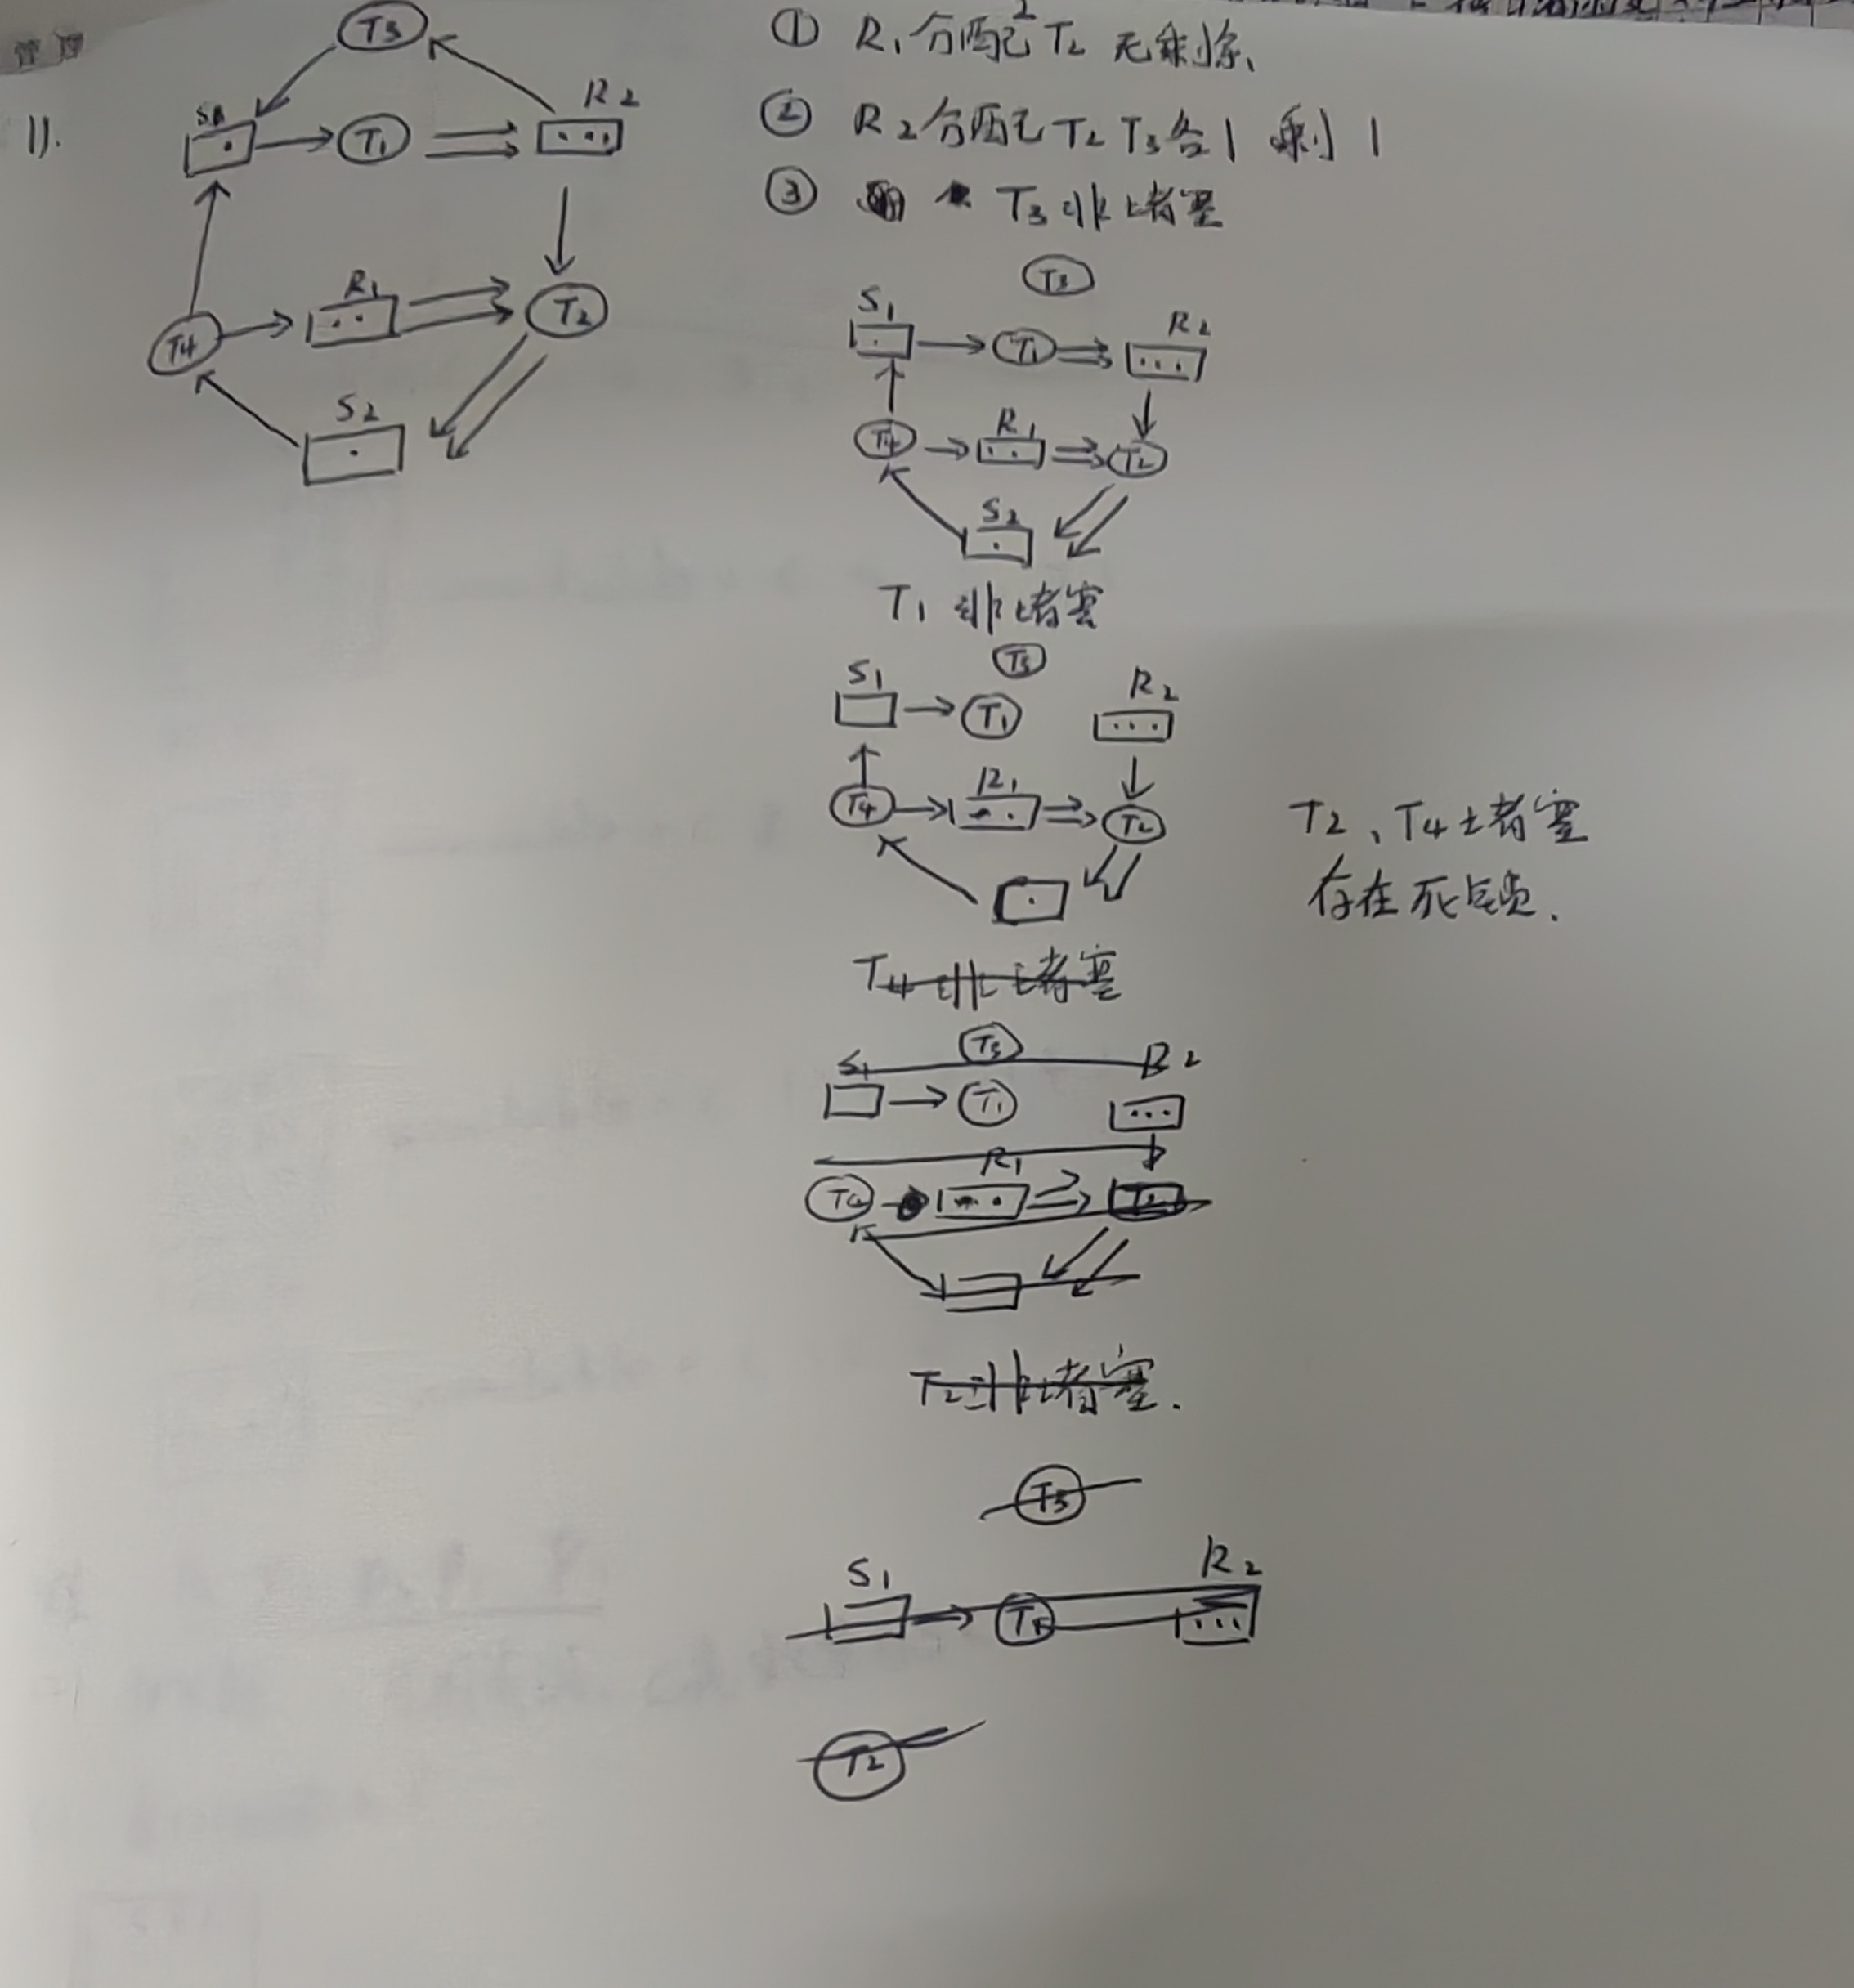 管理
1).
T3
S1
T1
R2
T4
R1
T2
S2
① R1分配2 T2 无剩余、
② R2分配 T2 T3各1 剩1
③ T3非堵塞
T3
S1
T1
R2
T4
R1
T2
S2
T1 非堵塞
T3
S1
T1
R2
T4
R1
T2
T2、T4堵塞
存在死锁.
T4 非堵塞
T3
S1
R2
T1
R1
T4
T2
T2非堵塞.
T3
S1
T1
R2
T2